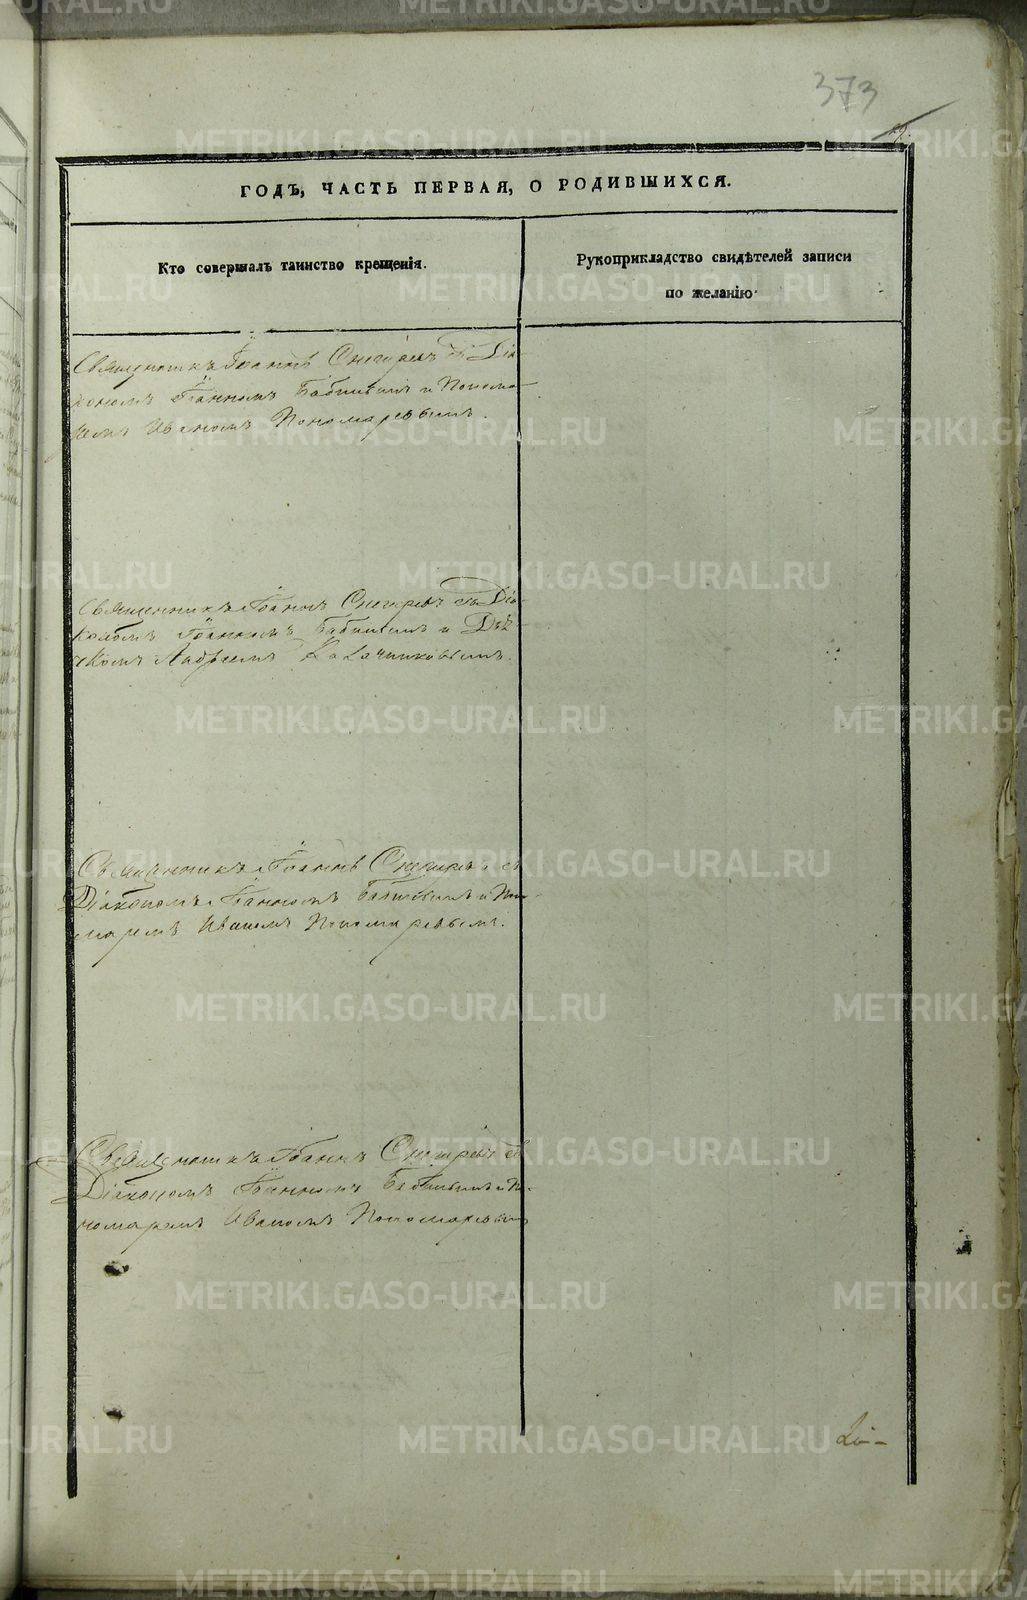 373
ГОДЪ, ЧАСТЬ ПЕРВАЯ, О РОДИВШИХСЯ.
Кто совершалъ таинство крещенія.
Рукоприкладство свидѣтелей записи
по желанію
Священникъ Іоаннъ Снегиревъ съ Діа-
кономъ Іоанномъ Бабинымъ и Понома-
ремъ Иваномъ Пономаревымъ.
Священникъ Іоаннъ Снегиревъ съ Діа-
кономъ Іоанномъ Бабинымъ и Дья-
чкомъ Андреемъ
Священникъ Іоаннъ Снегиревъ съ
Діакономъ Іоанномъ Бабинымъ и Поно-
маремъ Иваномъ Пономаревымъ.
Священникъ Іоаннъ Снегиревъ съ
Діакономъ Іоанномъ Бабинымъ и По-
номаремъ Иваномъ Пономаревымъ
METRIKI.GASO-URAL.RU